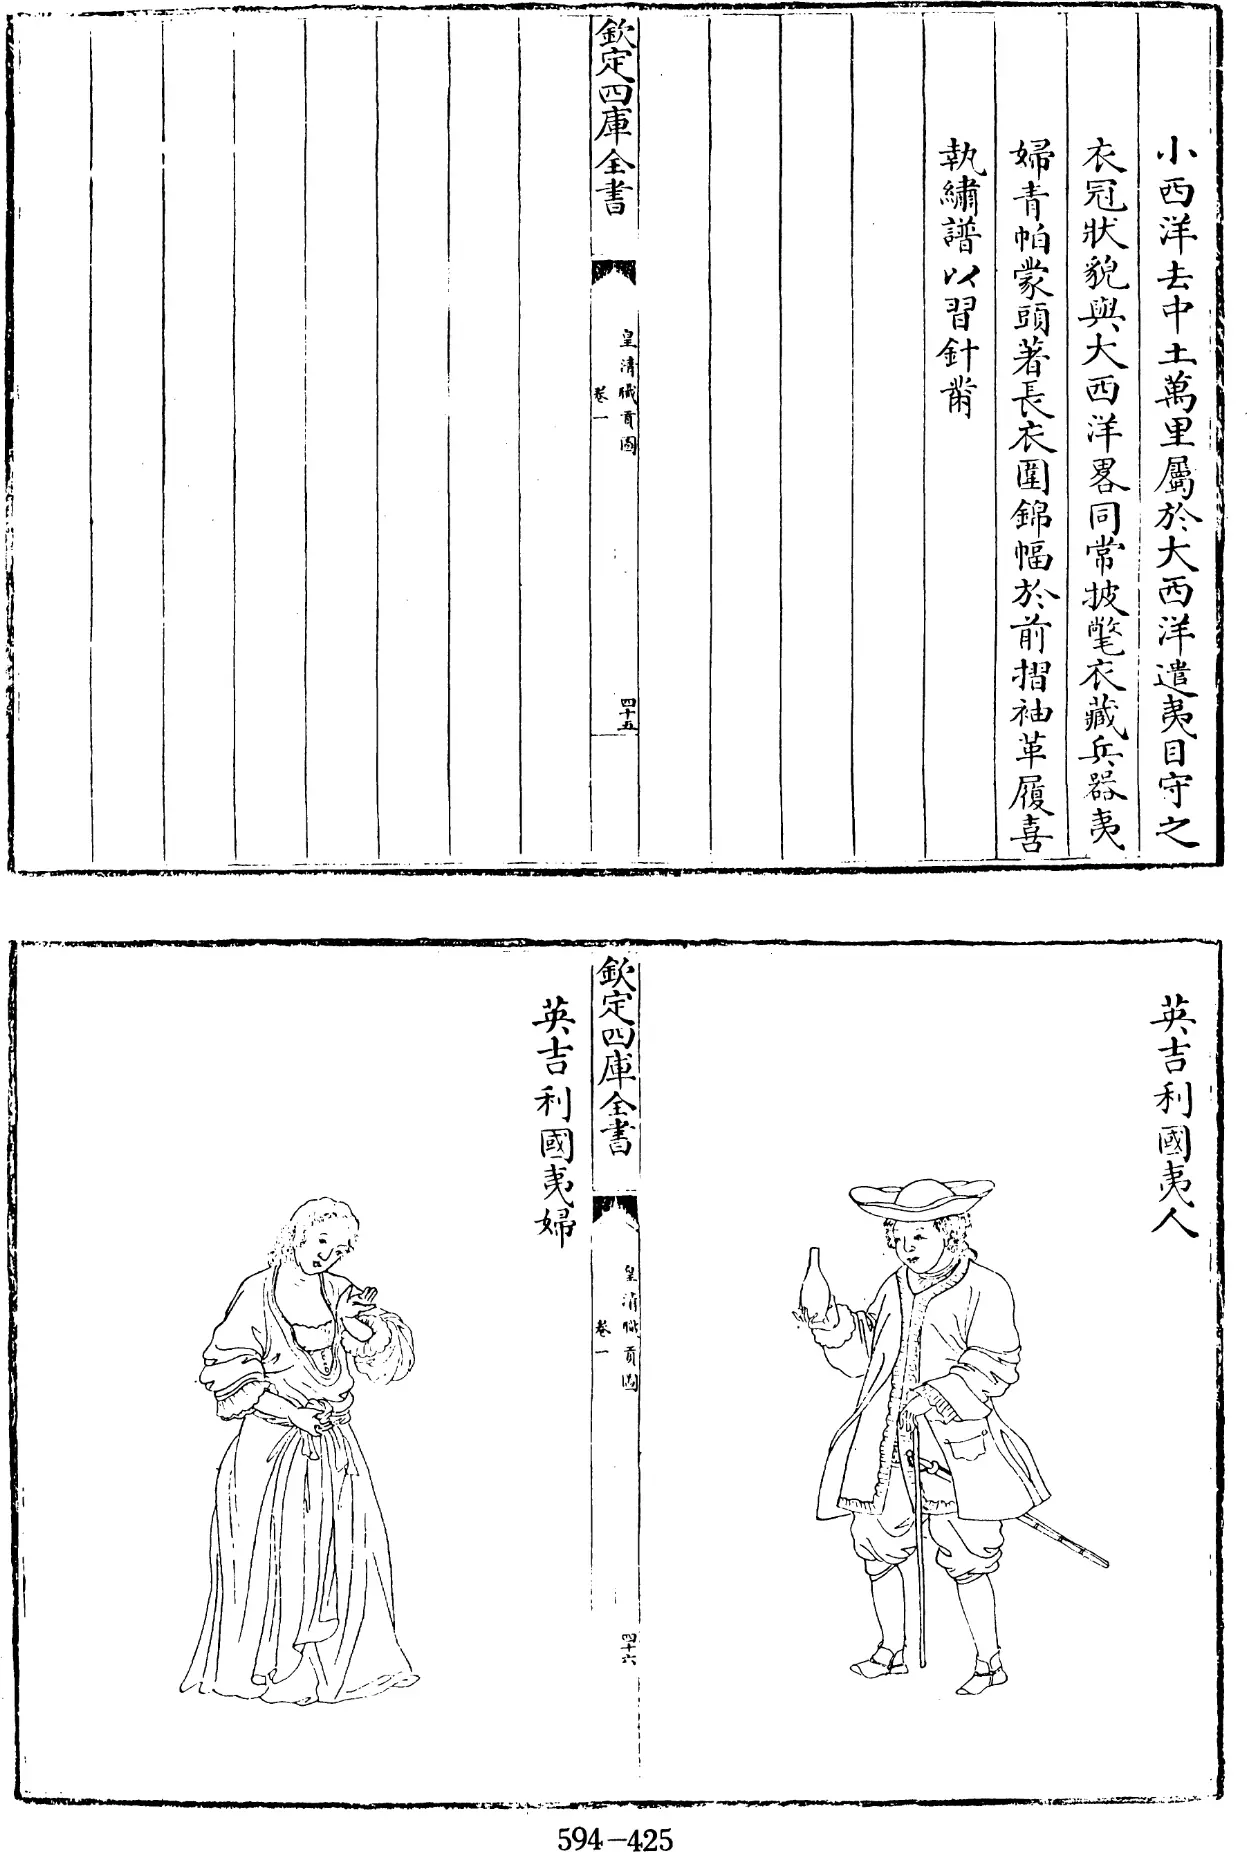 小西洋去中土萬里屬於大西洋遣夷目守之
衣冠狀貌與大西洋畧同常披氅衣藏兵器夷
婦青帕蒙頭著長衣圍錦幅於前摺袖革履喜
執繡譜以習針黹
欽定四庫全書
皇清職貢圖
卷一
四十五
英吉利國夷人
欽定四庫全書
皇清職貢圖
卷一
四十六
英吉利國夷婦
594-425